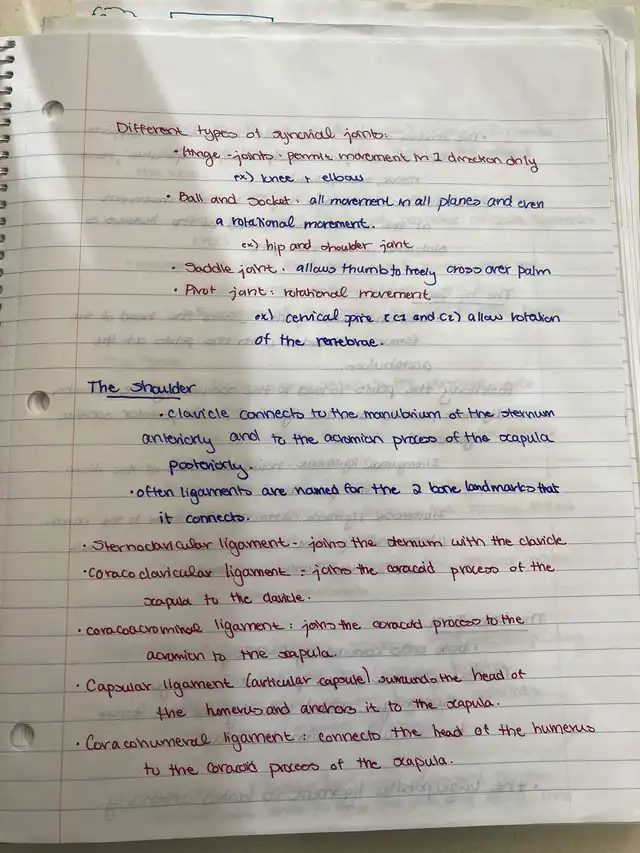 Different types of synovial joints:
• Hinge - joints · permit movement in 1 direction only
ex) knee + elbow
• Ball and socket: all movement in all planes and even
a rotational movement.
ex) hip and shoulder joint
• Saddle joint · allows thumb to freely cross over palm
• Pivot joint: rotational movement
ex) cervical spine (C1 and C2) allow rotation
of the vertebrae.
The Shoulder
• clavicle connects to the manubrium of the sternum
anteriorly and to the acromian process of the scapula
posteriorly.
• often ligaments are named for the 2 bone landmarks that
it connects.
• Sternoclavicular ligament - joins the sternum with the clavicle
• Coracoclavicular ligament: joins the coracoid process of the
scapula to the clavicle.
• coracoacrominal ligament: joins the coracoid process to the
acromion to the scapula.
• Capsular ligament (articular capsule) surrounds the head of
the humerus and anchors it to the scapula.
• Coracohumeral ligament: connects the head of the humerus
to the coracoid process of the scapula.